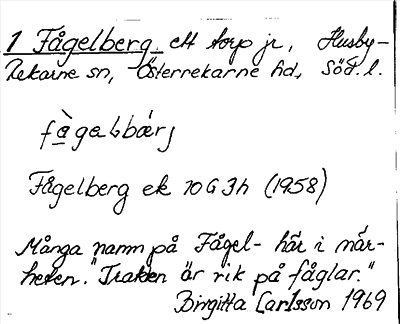 1 Fågelberg, ett torp jr, Husby-
Rekarne sn, Österrekarne hd, Söd. l.
fàgəlbærj
Fågelberg ek 10G3h (1958)
Många namn på Fågel- här i når-
heten. "Trakten är rik på fåglar."
Birgitta Carlsson 1969